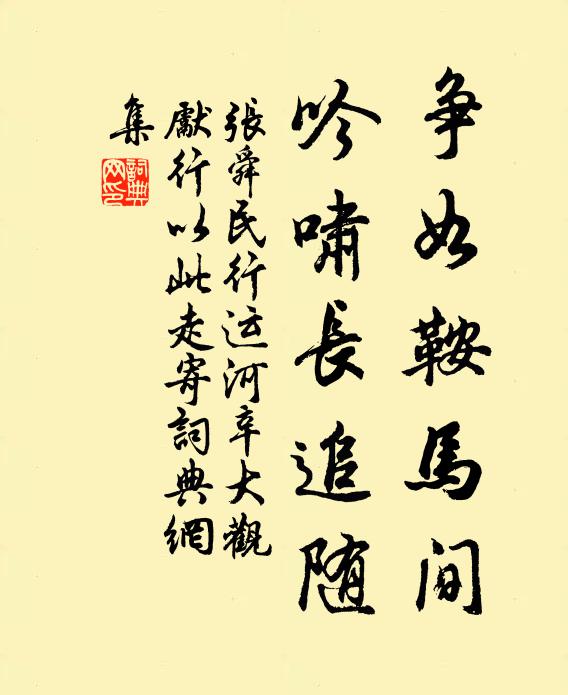 争如鞍馬间
吟嘯長追随
張舜民行运河辛大觀
獻行以此走寄詞典網
集
詞典
网印